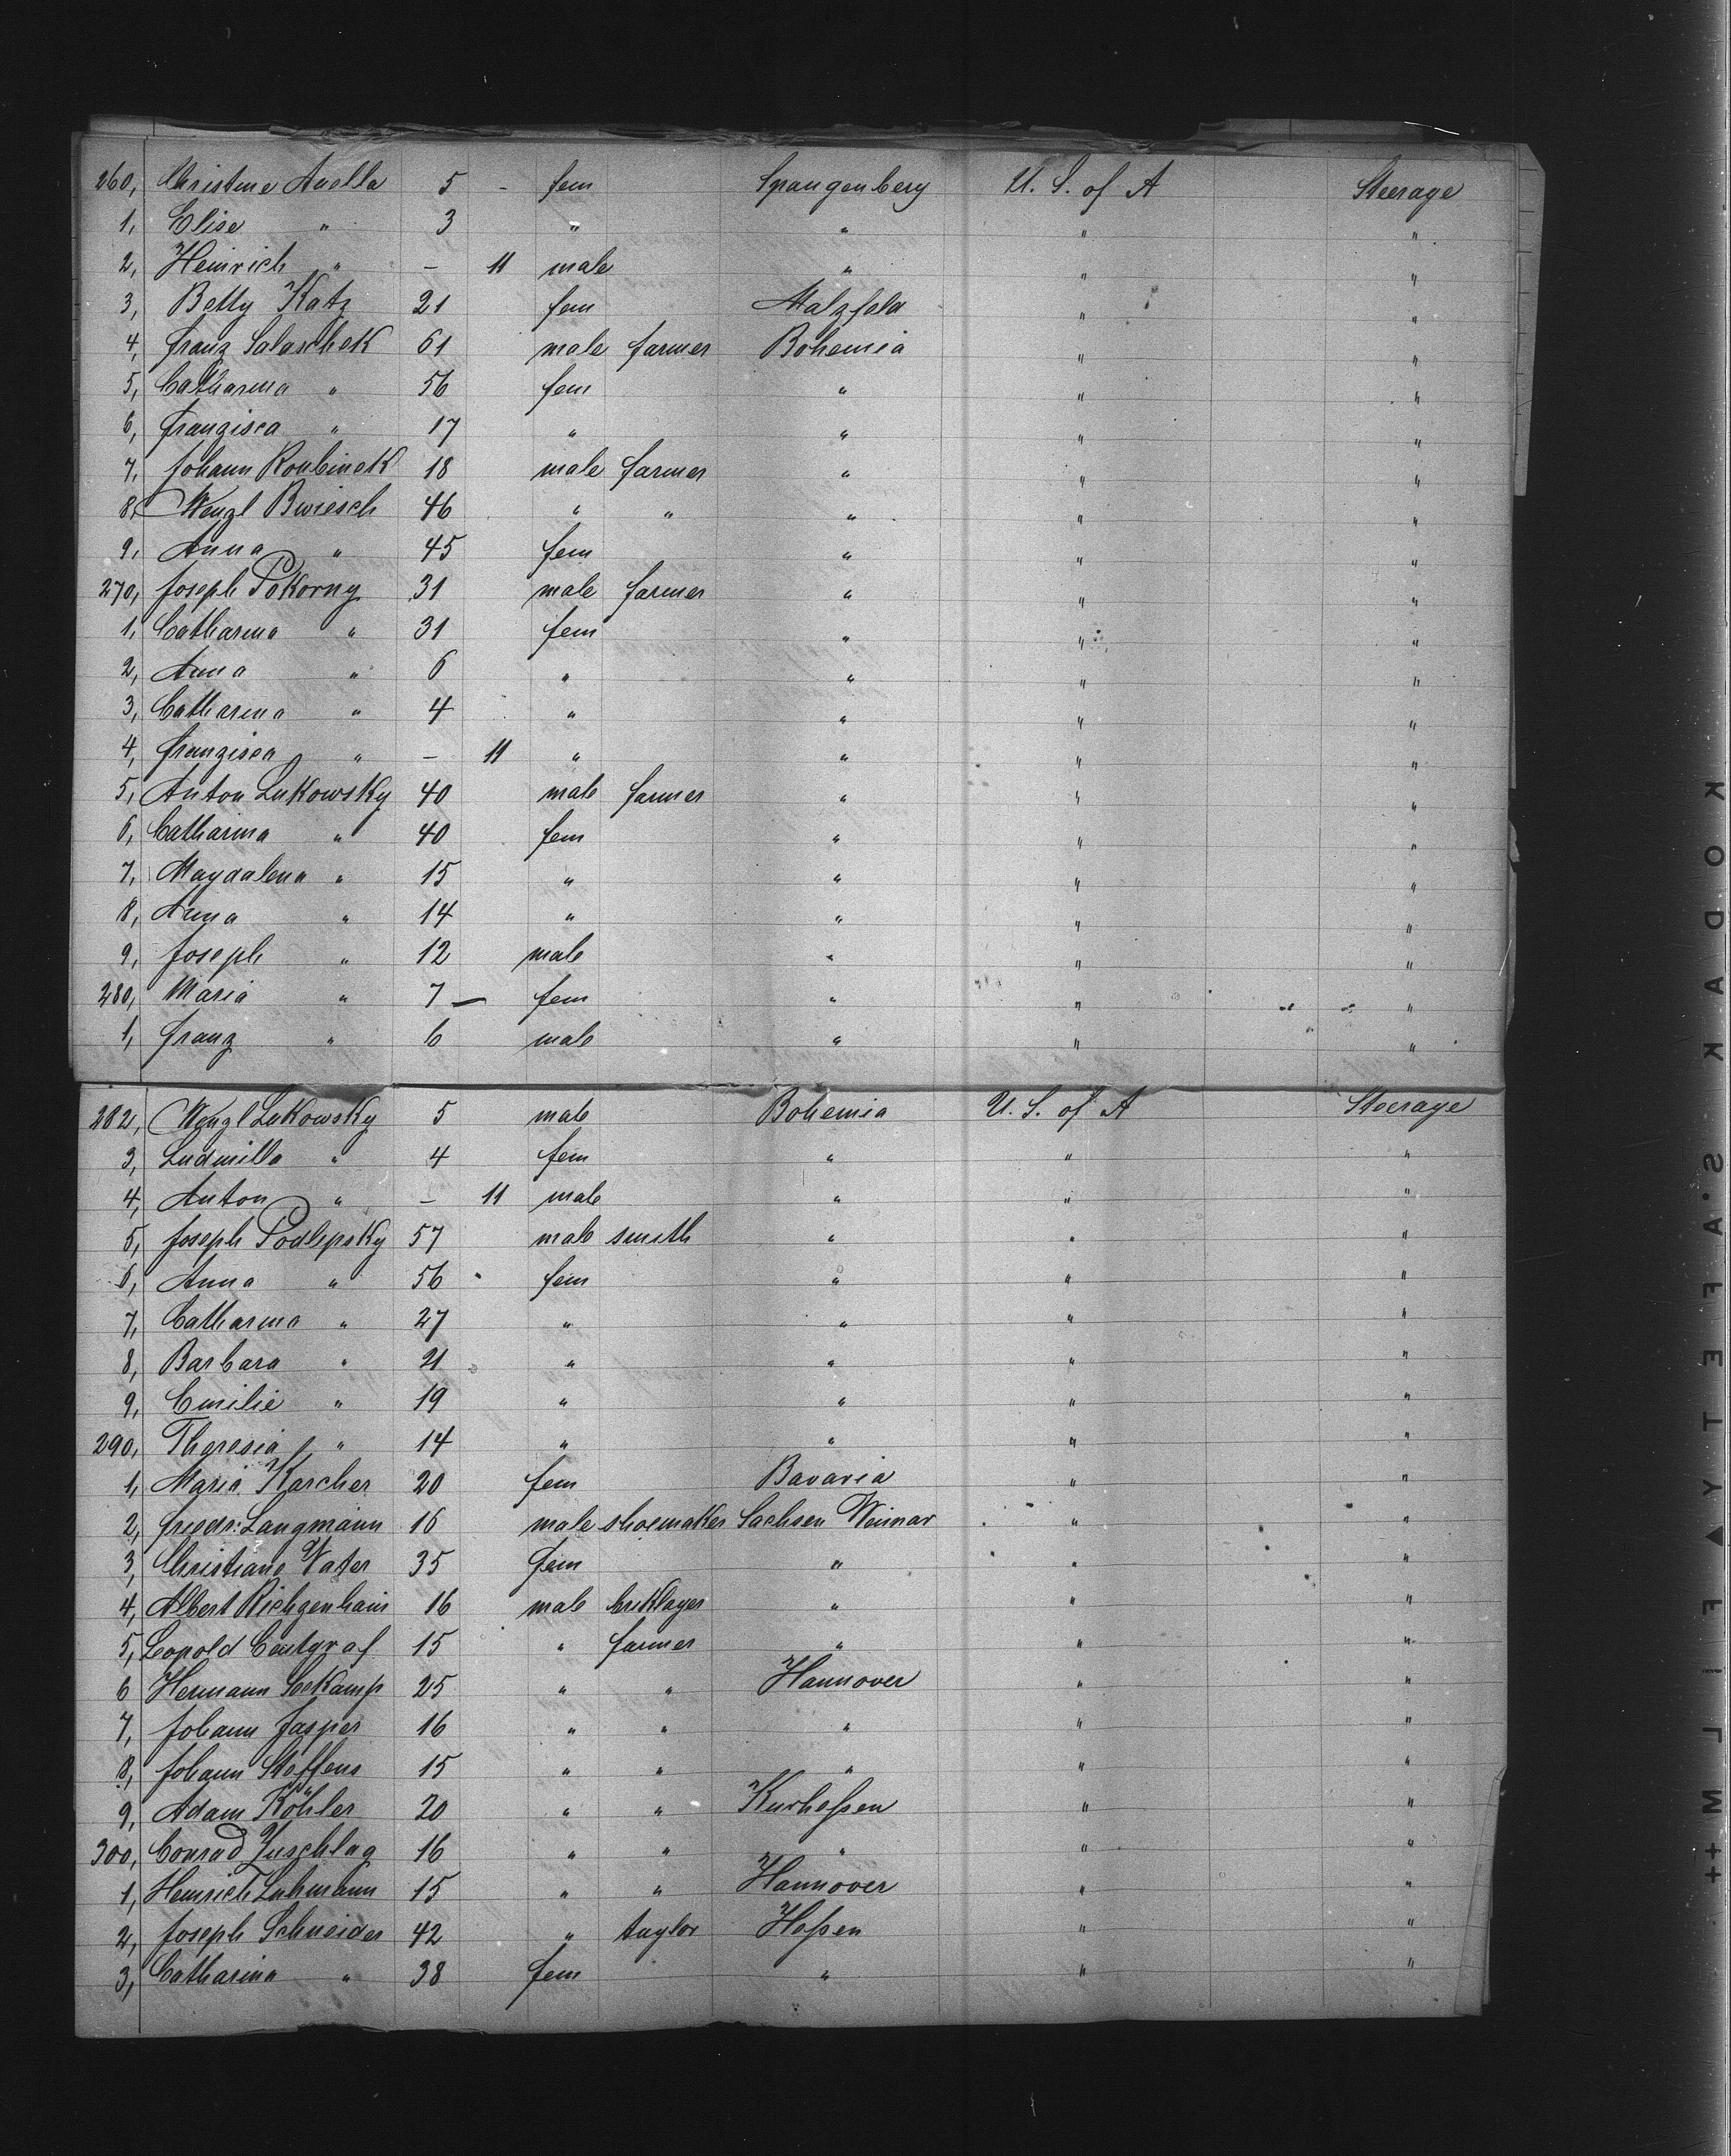 260, Christine Anella 5 - fem Spangenberg U. S. of A Steerage
1, Elise " 3 " " " "
2, Heinrich " - 11 male " " "
3, Betty Katz 21 fem Malzfeld " "
4, Franz Salaschek 61 male farmer Bohemia " "
5, Catharina " 56 fem " " "
6, Franzisca " 17 " " " "
7, Johann Roubinek 18 male farmer " " "
8, Wenzl Bwiesch 46 " " " " "
9, Anna " 45 fem " " "
270, Joseph Pokorny 31 male farmer " " "
1, Catharina " 31 fem " " "
2, Anna " 6 " " " "
3, Catharina " 4 " " " "
4, Franzisca " - 11 " " " "
5, Anton Lukowsky 40 male farmer " " "
6, Catharina " 40 fem " " "
7, Magdalena " 15 " " " "
8, Anna " 14 " " " "
9, Joseph " 12 male " " "
280, Maria " 7 - fem " " "
1, Franz " 6 male " " "
282, Wenzl Lukowsky 5 male Bohemia U. S. of A Steerage
3, Ludmilla " 4 fem " " "
4, Anton " - 11 male " " "
5, Joseph Podlepsky 57 male smith " " "
6, Anna " 56 fem " " "
7, Catharina " 27 " " " "
8, Barbara " 21 " " " "
9, Emilie " 19 " " " "
290, Theresia " 14 " " " "
1, Maria Karcher 20 fem Bavaria " "
2, Friedr: Langmann 16 male shoemaker Sachsen Weimar " "
3, Christiane Vater 35 fem " " "
4, Albert Richgenhain 16 male briklayer " " "
5, Leopold Centgraf 15 " farmer " " "
6 Hermann Seekamp 25 " " Hannover " "
7, Johann Jasper 16 " " " " "
8, Johann Steffens 15 " " " " "
9, Adam Köhler 20 " " Kurheßen " "
300, Conrad Zuschlag 16 " " " " "
1, Heinrich Luhmann 15 " " Hannover " "
2, Joseph Schneider 42 " taylor Heßen " "
3, Catharina " 38 fem " " "
KODAK SAFETY ▲ FILM ++